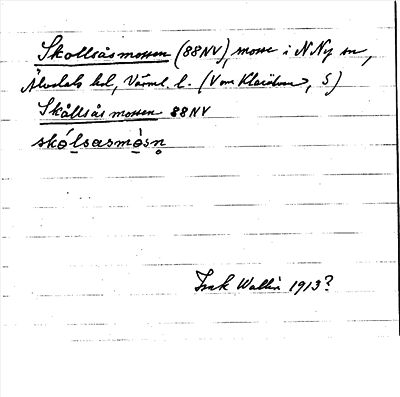 Skollsåsmossen (88NV), mosse i N Ny sn,
Älvdals hd, Värml. l. (Vom Klarälven, S)
Skållsåsmossen 88NV
skólsasmòsn
Isak Wallin 1913?